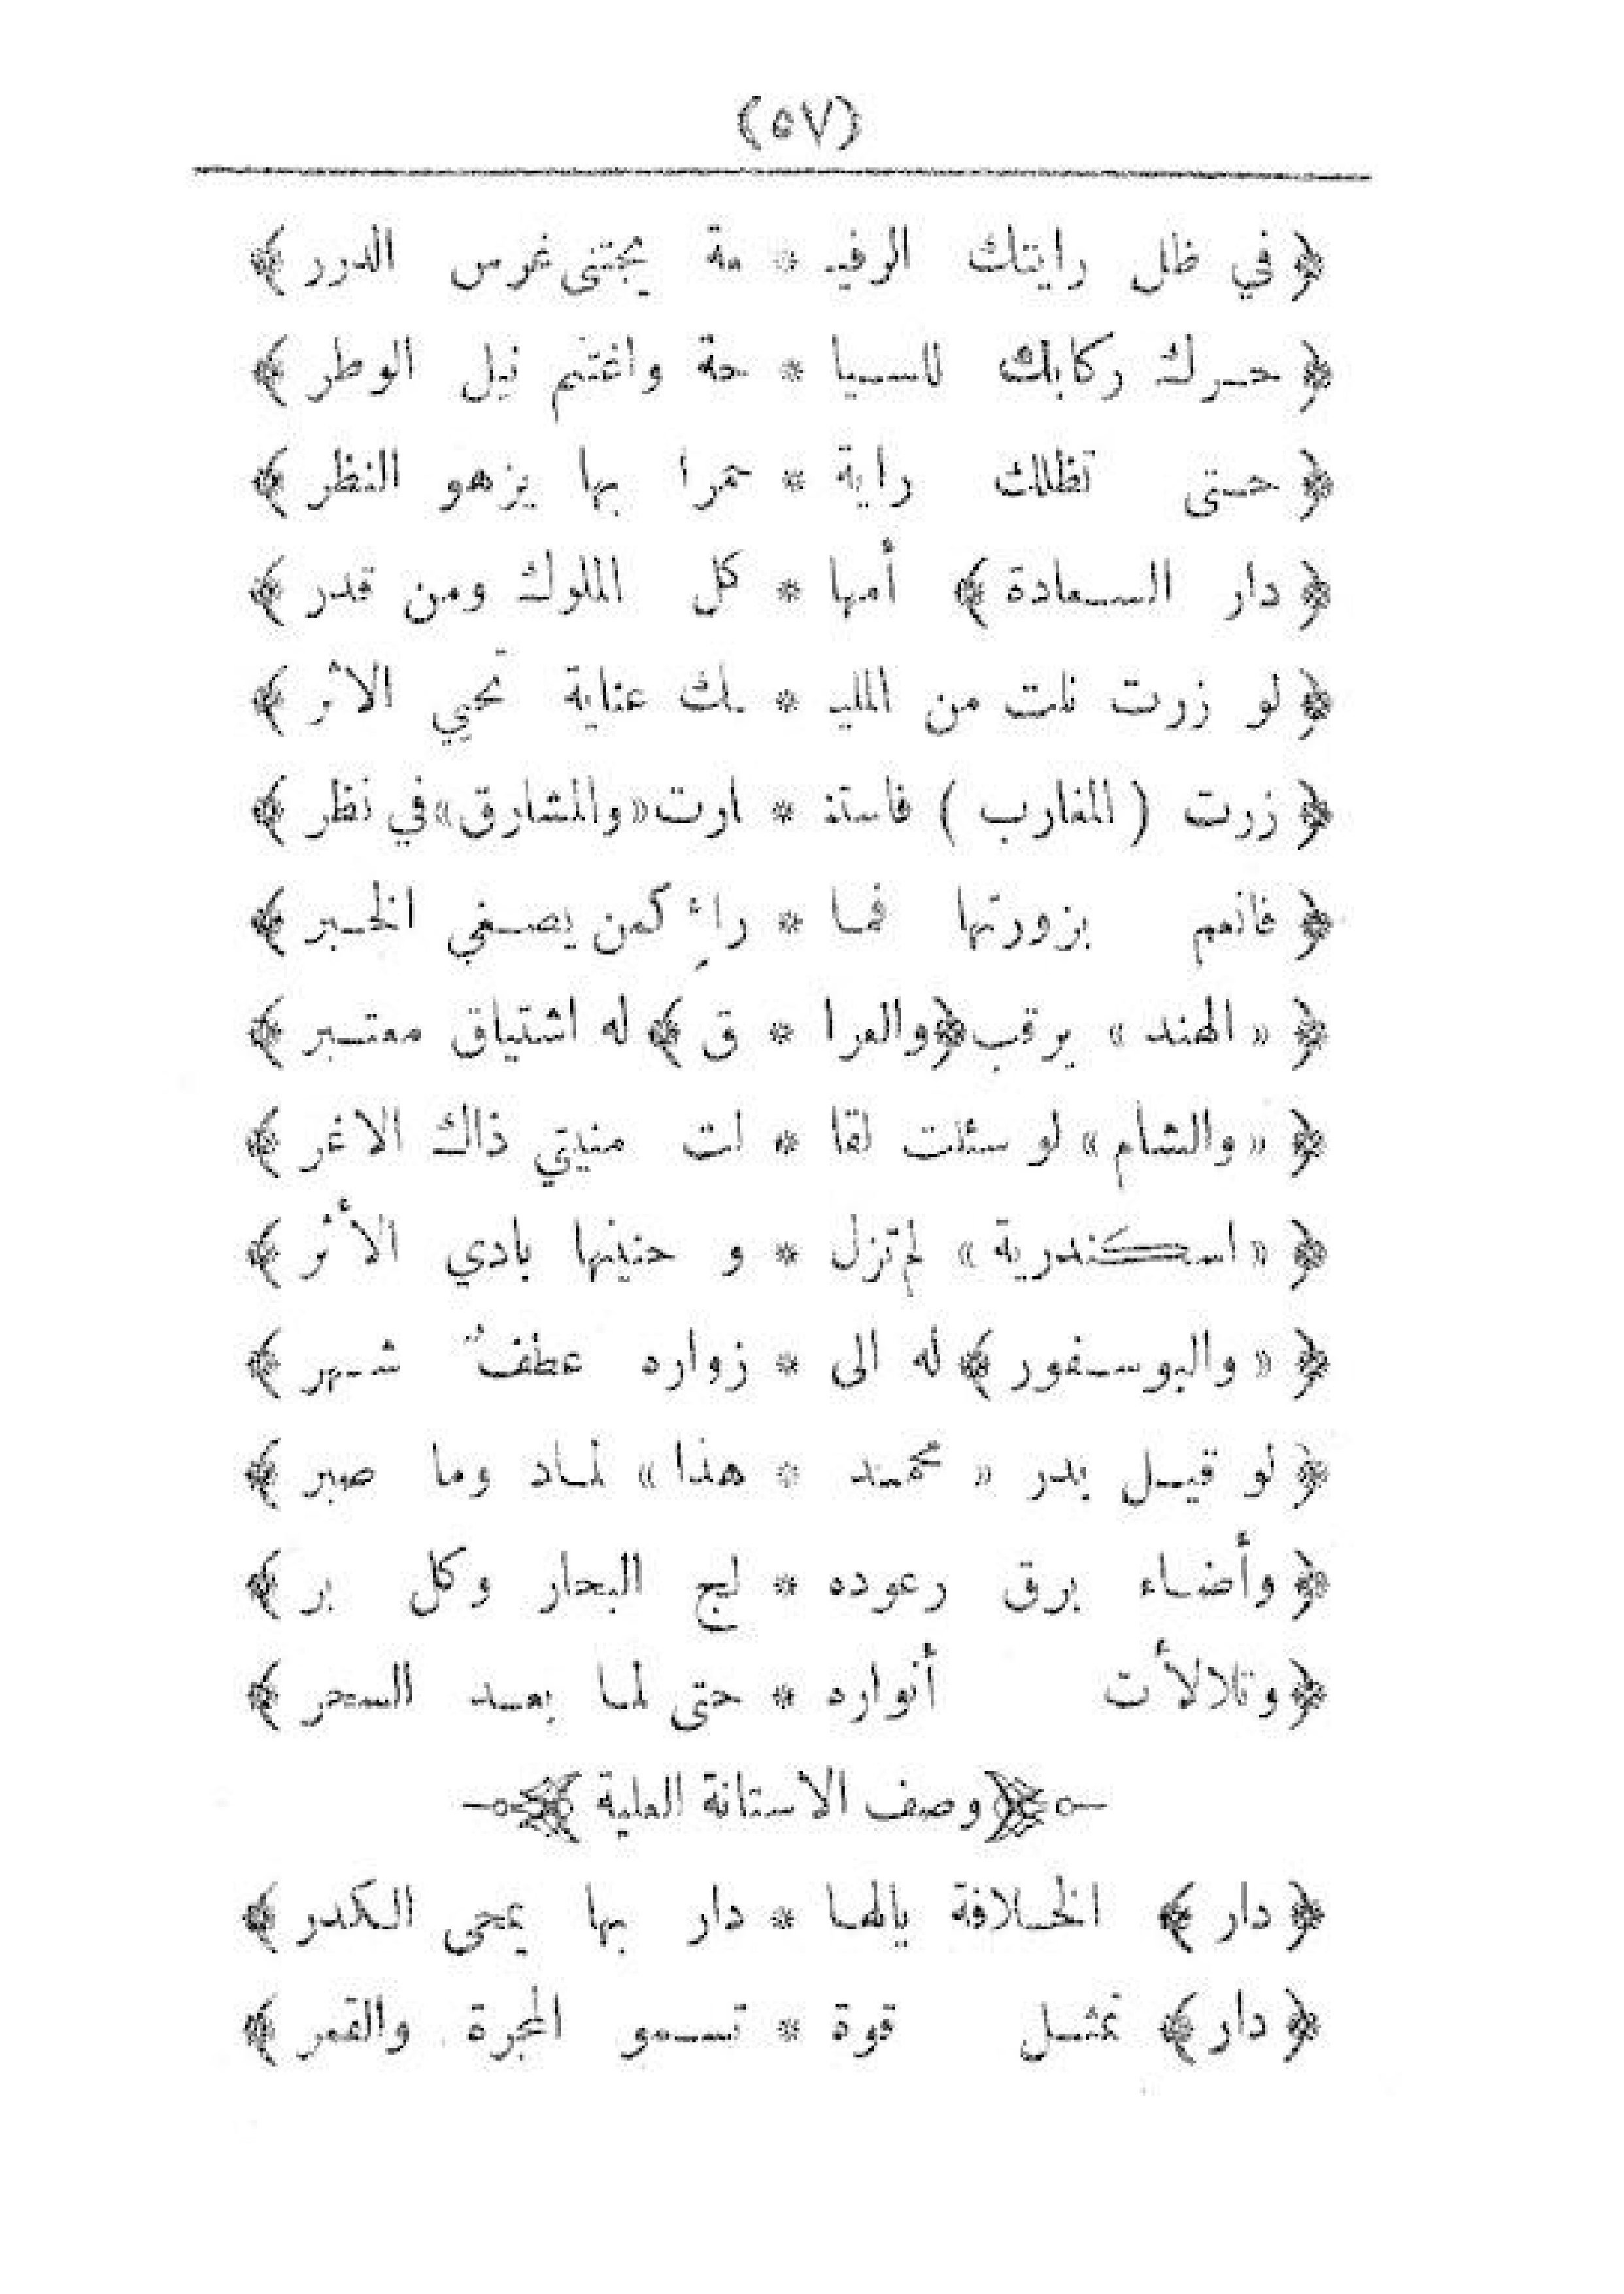 (٥٧)
﴿ في ظل رايتك الرفيـ * ـعة يجتنى غرس الدرر ﴾
﴿ حرك ركابك للسيا * حة واغتنم نيل الوطر ﴾
﴿ حتى تظللك راية * حمرا بها يزهو النظر ﴾
﴿ دار السعادة ﴾ أمها * كل الملوك ومن قدر ﴾
﴿ لو زرت نلت من المليـ * ـك عناية تحيي الاثر ﴾
﴿ زرت ( المغارب ) فاستنـ * ارت «والمشارق» في نظر ﴾
﴿ فانعم بزورتها فما * راءٍ كمن يصغي الخبر ﴾
﴿ « الهند » يرقب ﴿والعرا * ق ﴾ له اشتياق معتبر ﴾
﴿ «والشام» لو سئلت لقا * لت منيتي ذاك الاغر ﴾
﴿ «اسكندرية» لم تزل * و حنينها بادي الأثر ﴾
﴿ « والبوسفور ﴾ له الى * زواره عطفٌ شهر ﴾
﴿ لو قيل بدر « محمد * هذا » لماد وما صبر ﴾
﴿ وأضاء برق رعوده * لج البحار وكل بر ﴾
﴿ وتلالأت أنواره * حتى لما بعد السحر ﴾
﴿ وصف الاستانة العلية ﴾
﴿ دار ﴾ الخلافة يالها * دار بها يمحى الكدر ﴾
﴿ دار ﴾ تمثل قوة * تسمو المجرة والقمر ﴾